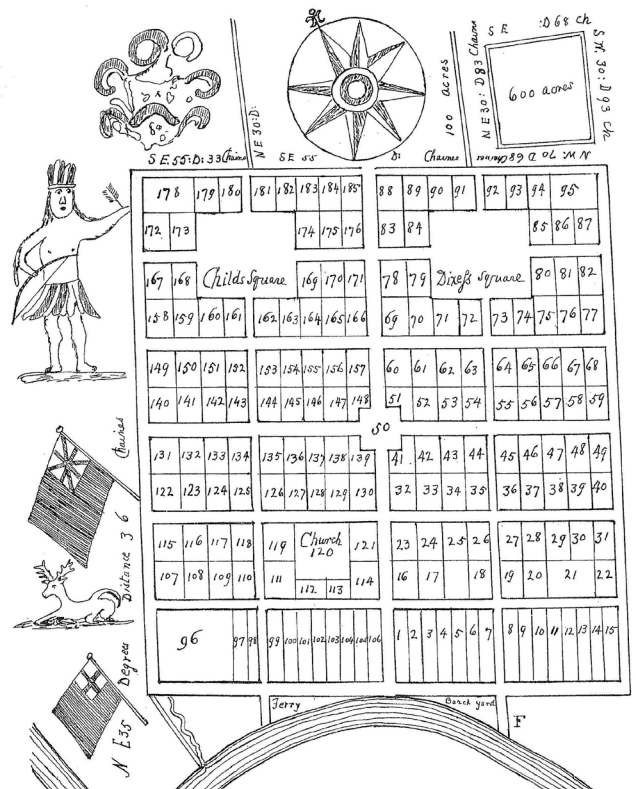 S E :D 68 ch
S W 30: D 93 ch
N E 30: D 83 Chains
600 acres
N: W: 70 D 68 Chaines
100 acres
N E 30: D:
S E 55: D: 33 Chaines
SE 55 D: Chaines
178 179 180 181 182 183 184 185 88 89 90 91 92 93 94 95
172 173 174 175 176 83 84 85 86 87
167 168 Childs Square 169 170 171 78 79 Square 80 81 82
158 159 160 161 162 163 164 165 166 69 70 71 72 73 74 75 76 77
149 150 151 152 153 154 155 156 157 60 61 62 63 64 65 66 67 68
140 141 142 143 144 145 146 147 148 51 52 53 54 55 56 57 58 59
50
131 132 133 134 135 136 137 138 139 41 42 43 44 45 46 47 48 49
122 123 124 125 126 127 128 129 130 32 33 34 35 36 37 38 39 40
115 116 117 118 119 Church 120 121 23 24 25 26 27 28 29 30 31
107 108 109 110 111 112 113 114 16 17 18 19 20 21 22
96 97 98 99 100 101 102 103 104 105 106 1 2 3 4 5 6 7 8 9 10 11 12 13 14 15
N E 35 Degrees Distance 36 Chaines
Ferry
yard
F